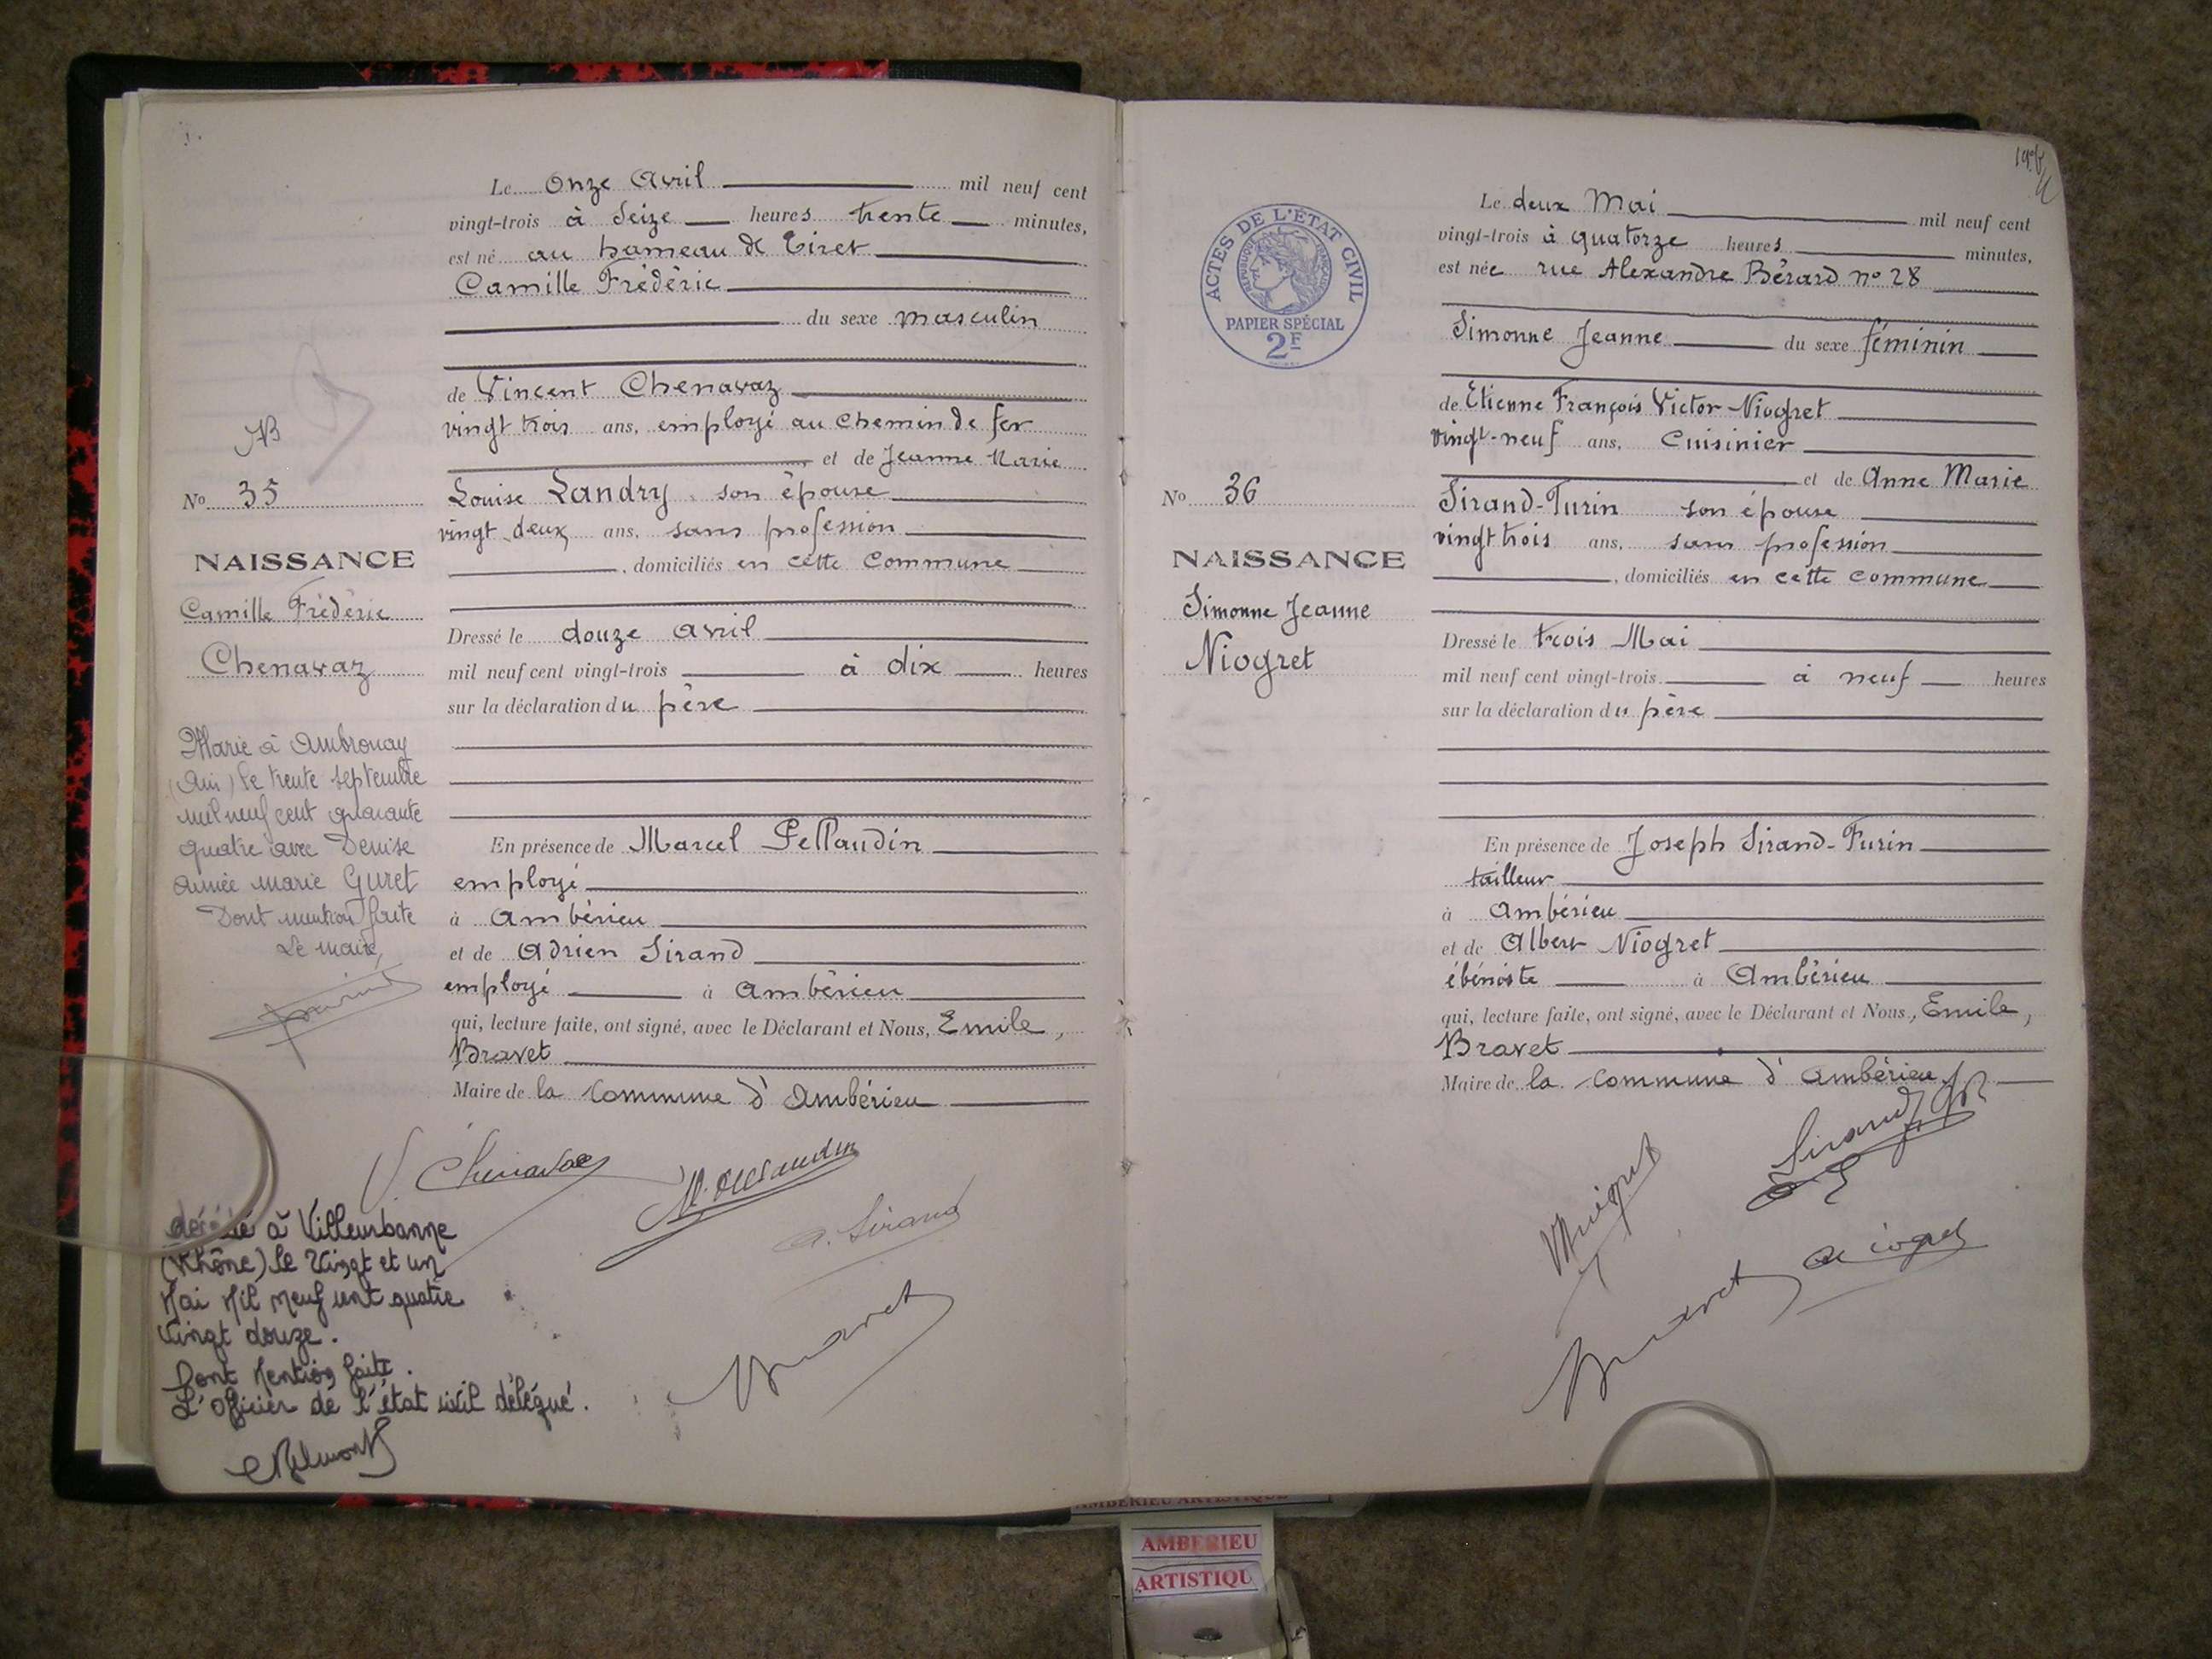 Le onze Avril mil neuf cent
vingt-trois à Seize heures trente minutes,
est né au hameau de Tiret
Camille Frédéric
du sexe masculin
de Vincent Chenavaz
vingt trois ans, employé au Chemin de fer
et de Jeanne Marie
Louise Landry son épouse
vingt deux ans, sans profession
, domiciliés en cette commune
Dressé le douze avril
mil neuf cent vingt-trois à dix heures
sur la déclaration du père
En présence de Marcel Pellaudin
employé
à Ambérieu
et de Adrien Sirand
employé à Ambérieu
qui, lecture faite, ont signé, avec le Déclarant et Nous, Emile,
Bravet
Maire de la Commune d'Ambérieu
V. Chenavaz
M. Pellaudin
A. Sirand
Bravet
N° 35
NAISSANCE
Camille Frédéric
Chenavaz
Marié à Ambronay
(Ain) le trente septembre
mil neuf cent quarante
quatre avec Denise
Aimée Marie Guret
Dont mention faite
Le maire,
décédé à Villeurbanne
(Rhône) le Vingt et un
Mai Mil neuf cent quatre
Vingt douze.
Dont Mention faite.
L'Officier de l'état civil délégué.
ACTES DE L'ÉTAT CIVIL
RÉPUBLIQUE FRANÇAISE
PAPIER SPÉCIAL
2F
N° 36
NAISSANCE
Simonne Jeanne
Niogret
Le deux Mai mil neuf cent
vingt-trois à quatorze heures minutes,
est née rue Alexandre Bérard n° 28
Simonne Jeanne du sexe féminin
de Etienne François Victor Niogret
vingt-neuf ans, Cuisinier
et de Anne Marie
Sirand-Turin son épouse
vingt trois ans, sans profession
, domiciliés en cette commune
Dressé le trois Mai
mil neuf cent vingt-trois à neuf heures
sur la déclaration du père
En présence de Joseph Sirand-Turin
tailleur
à Ambérieu
et de Albert Niogret
ébéniste à Ambérieu
qui, lecture faite, ont signé, avec le Déclarant et Nous, Emile,
Bravet
Maire de la Commune d'Ambérieu
Sirand
Niogret
A Niogret
Bravet
AMBERIEU ARTISTIQUE
AMBERIEU
ARTISTIQU